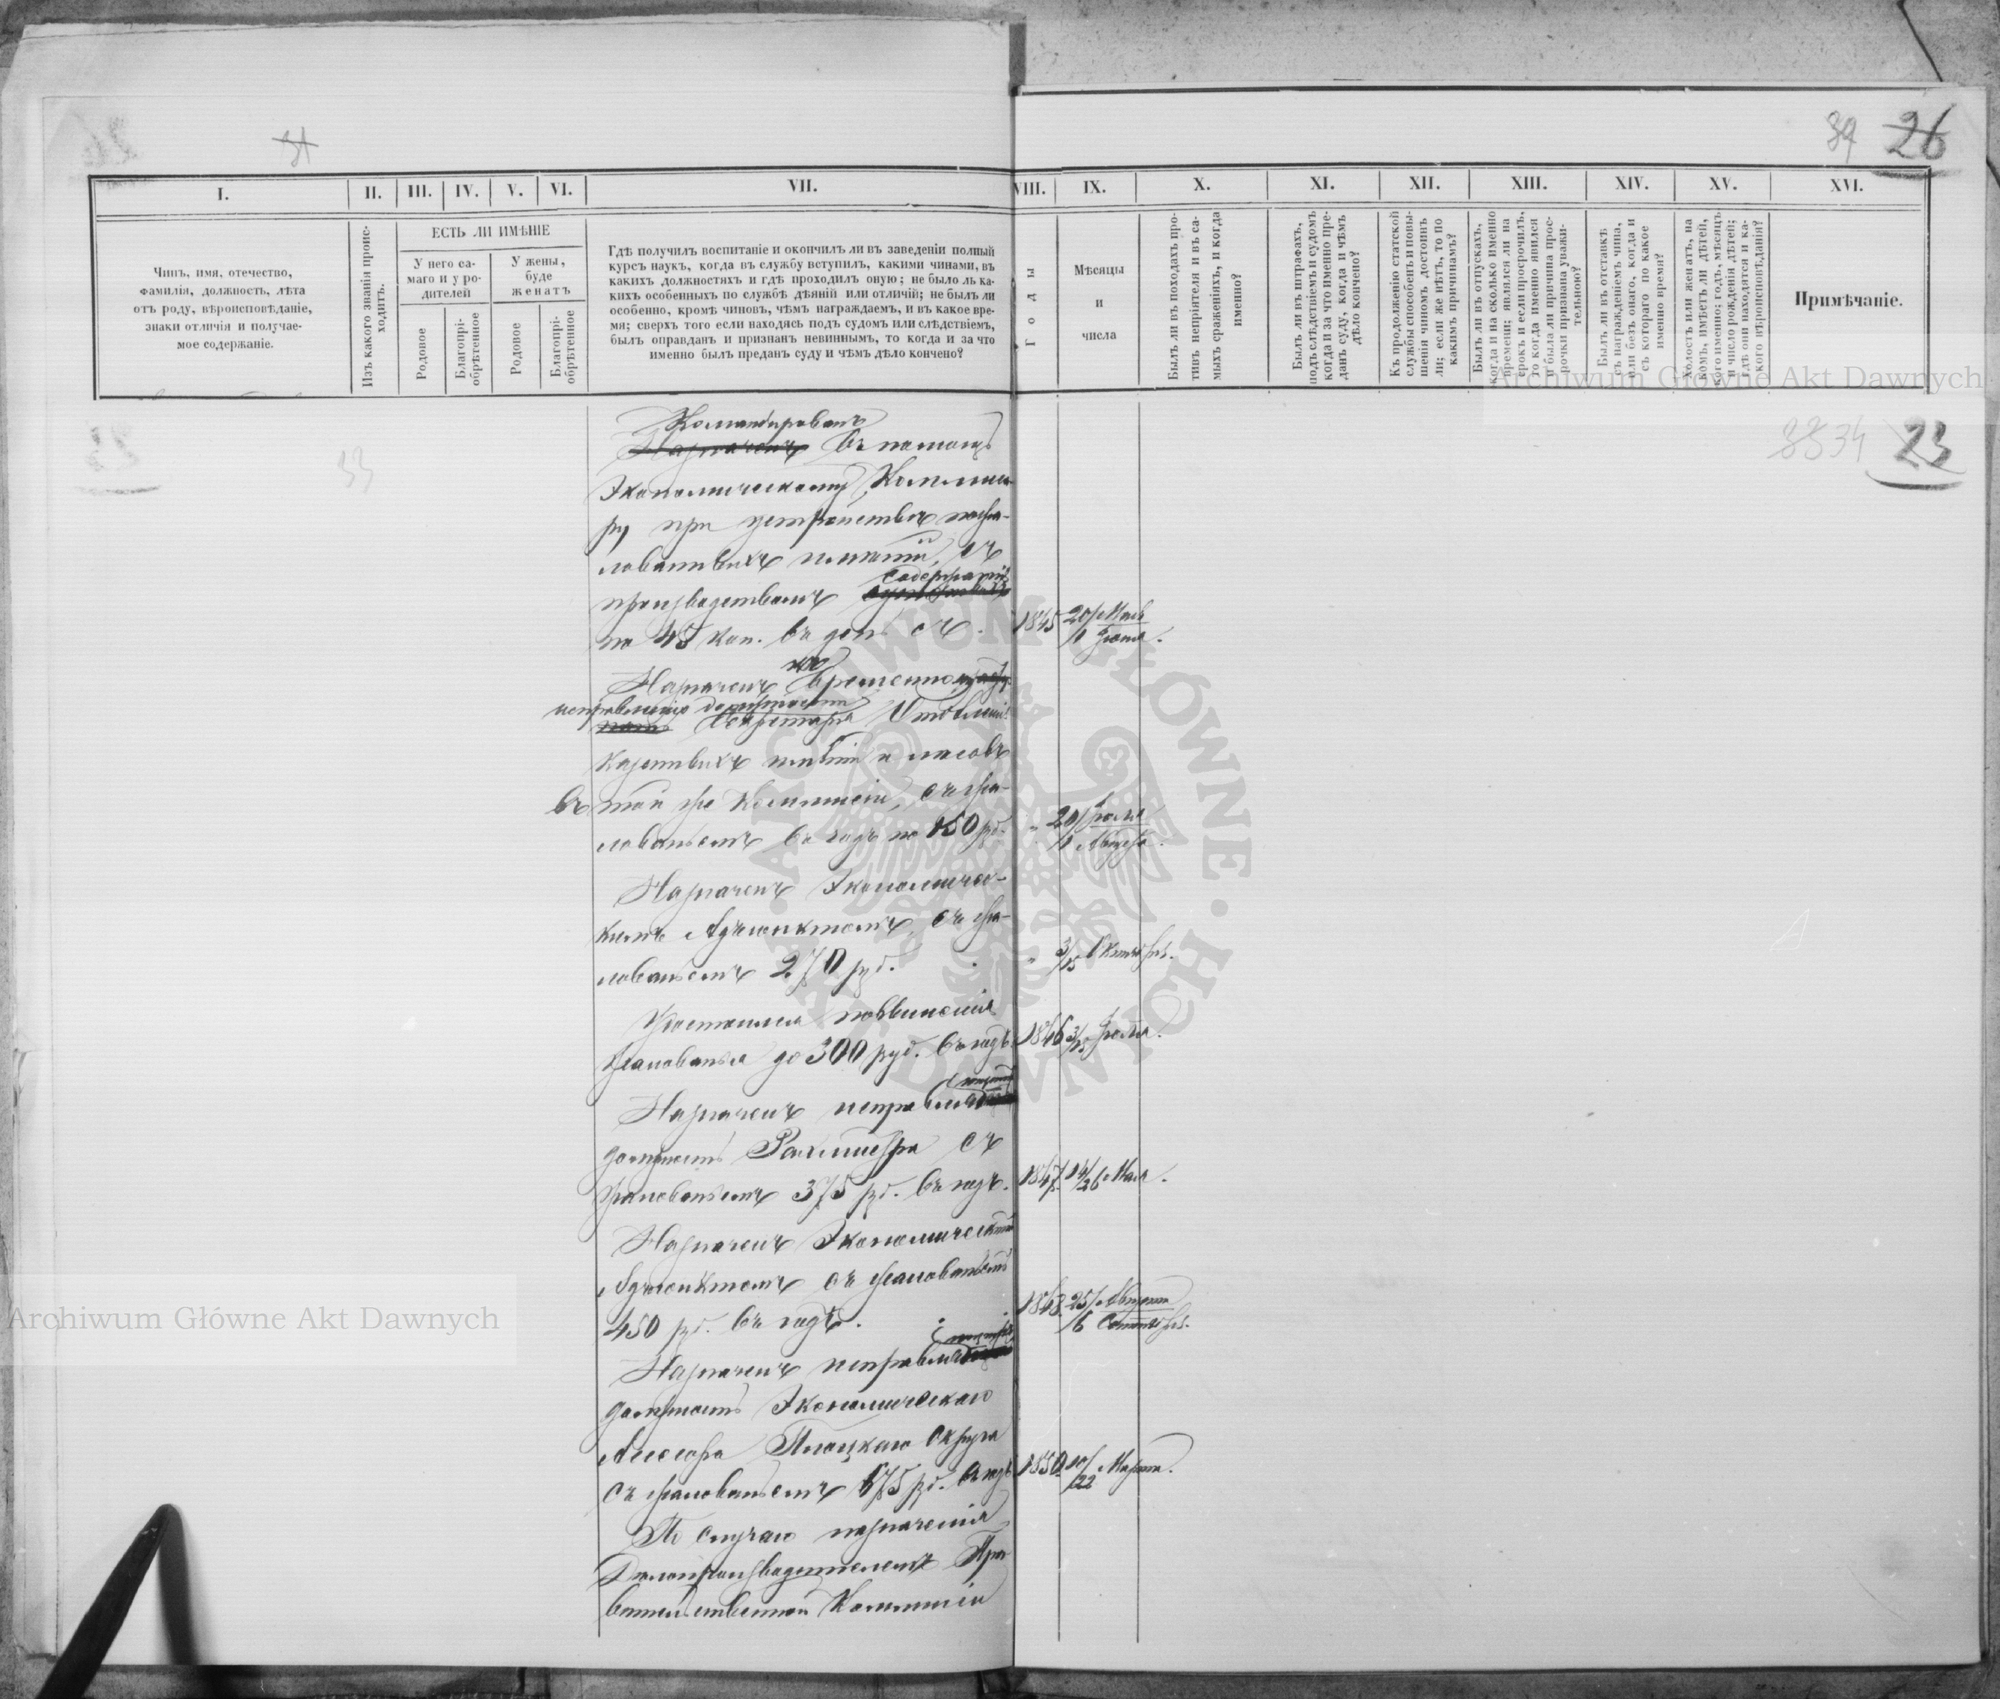 31
39 26
I.
II.
III.
IV.
V.
VI.
VII.
VIII.
IX.
X.
XI.
XII.
XIII.
XIV.
XV.
XVI.
Чинъ, имя, отечество,
фамилія, должность, лѣта
отъ роду, вѣроисповѣданіе,
знаки отличія и получае-
мое содержаніе.
Изъ какого званія проис-
ходитъ.
ЕСТЬ ЛИ ИМѢНІЕ
У него са-
маго и у ро-
дителей
У жены,
буде
женатъ
Родовое
Благопрі-
обрѣтенное
Родовое
Благопрі-
обрѣтенное
Гдѣ получилъ воспитаніе и окончилъ ли въ заведеніи полный
курсъ наукъ, когда въ службу вступилъ, какими чинами, въ
какихъ должностяхъ и гдѣ проходилъ оную; не было ль ка-
кихъ особенныхъ по службѣ дѣяній или отличій; не былъ ли
особенно, кромѣ чиновъ, чѣмъ награждаемъ, и въ какое вре-
мя; сверхъ того если находясь подъ судомъ или слѣдствіемъ,
былъ оправданъ и признанъ невиннымъ, то когда и за что
именно былъ преданъ суду и чѣмъ дѣло кончено?
Годы
Мѣсяцы
и
числа
Былъ ли въ походахъ про-
тивъ непріятеля и въ са-
мыхъ сраженіяхъ, и когда
именно?
Былъ ли въ штрафахъ,
подъ слѣдствіемъ и судомъ
когда и за что именно пре-
данъ суду, когда и чѣмъ
дѣло кончено?
Къ продолженію статской
службы способенъ и повы-
шенія чиномъ достоинъ
ли; если же нѣтъ, то по
какимъ причинамъ?
Былъ ли въ отпускахъ,
когда и на сколько именно
времени; являлся ли на
срокъ и если просрочилъ,
то когда именно явился
и была ли причина прос-
рочки признана уважи-
тельною?
Былъ ли въ отставкѣ
съ награжденіемъ чина,
или безъ онаго, когда и
съ котораго по какое
именно время?
Холостъ или женатъ, на
комъ, имѣетъ ли дѣтей,
кого именно; годъ, мѣсяцъ
и число рожденія дѣтей;
гдѣ они находятся и ка-
кого вѣроисповѣданія?
Примѣчаніе.
Archiwum Główne Akt Dawnych
33
34 23
Командированъ
Назначенъ въ помощь
Экономическому Коммиса-
ру при устройствѣ пожа-
лованныхъ имѣній, съ
содержанія
производствомъ
по 45 коп. въ день съ 1845 20/Мая
1 Іюня.
Назначенъ къ временному
исправленію должности
Секретаря Отдѣленія
казенныхъ имѣній и лѣсовъ
въ той же Коммисіи, съ жа-
лованьемъ въ годъ по 150 руб. " 20/Іюля
1 Августа.
Назначенъ Экономичес-
кимъ Адъюнктомъ, съ жа-
лованьемъ 270 руб. " 3/15 Октября.
Удостоился повышенія
жалованья до 300 руб. въ годъ. 1846 3/15 Іюля.
Назначенъ исправляющимъ
должность Рахмистра съ
жалованьемъ 375 руб. въ годъ. 1847. 14/26 Мая.
Назначенъ Экономическимъ
Адъюнктомъ съ жалованьемъ
450 руб. въ годъ. 1848. 25/Августа
6 Сентября.
Назначенъ исправляющимъ
должность Экономическаго
Ассесора Плоцкаго Округа
съ жалованьемъ 675 руб. въ годъ 1850. 10/22 Марта.
По случаю назначенія
Дѣлопроизводителемъ Пра-
вительственной Коммисіи
ARCHIWUM GŁÓWNE AKT DAWNYCH
Archiwum Główne Akt Dawnych